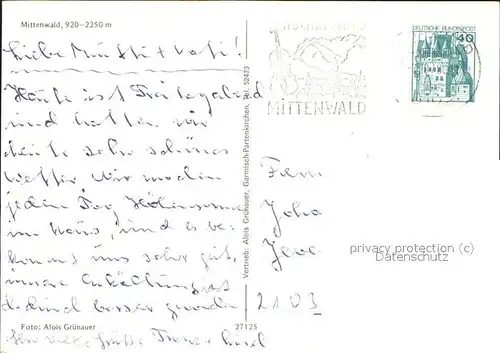 Mittenwald, 920–2250 m
MITTENWALD
DEUTSCHE BUNDESPOST
40
Liebe Mutti + Vati!
Heute ist Freitagabend
und hatten wir
heute sehr schönes
Wetter. Wir machen
jeden Tag Höhensonne
im Haus, und es be-
kommt uns sehr gut,
unsere Erkältung ist
dadurch besser geworden
Fam
Joha
2103
privacy protection (c)
Datenschutz
Vertrieb: Alois Grünauer, Garmisch-Partenkirchen, Tel. 52473
Foto: Alois Grünauer
27125
Grüße